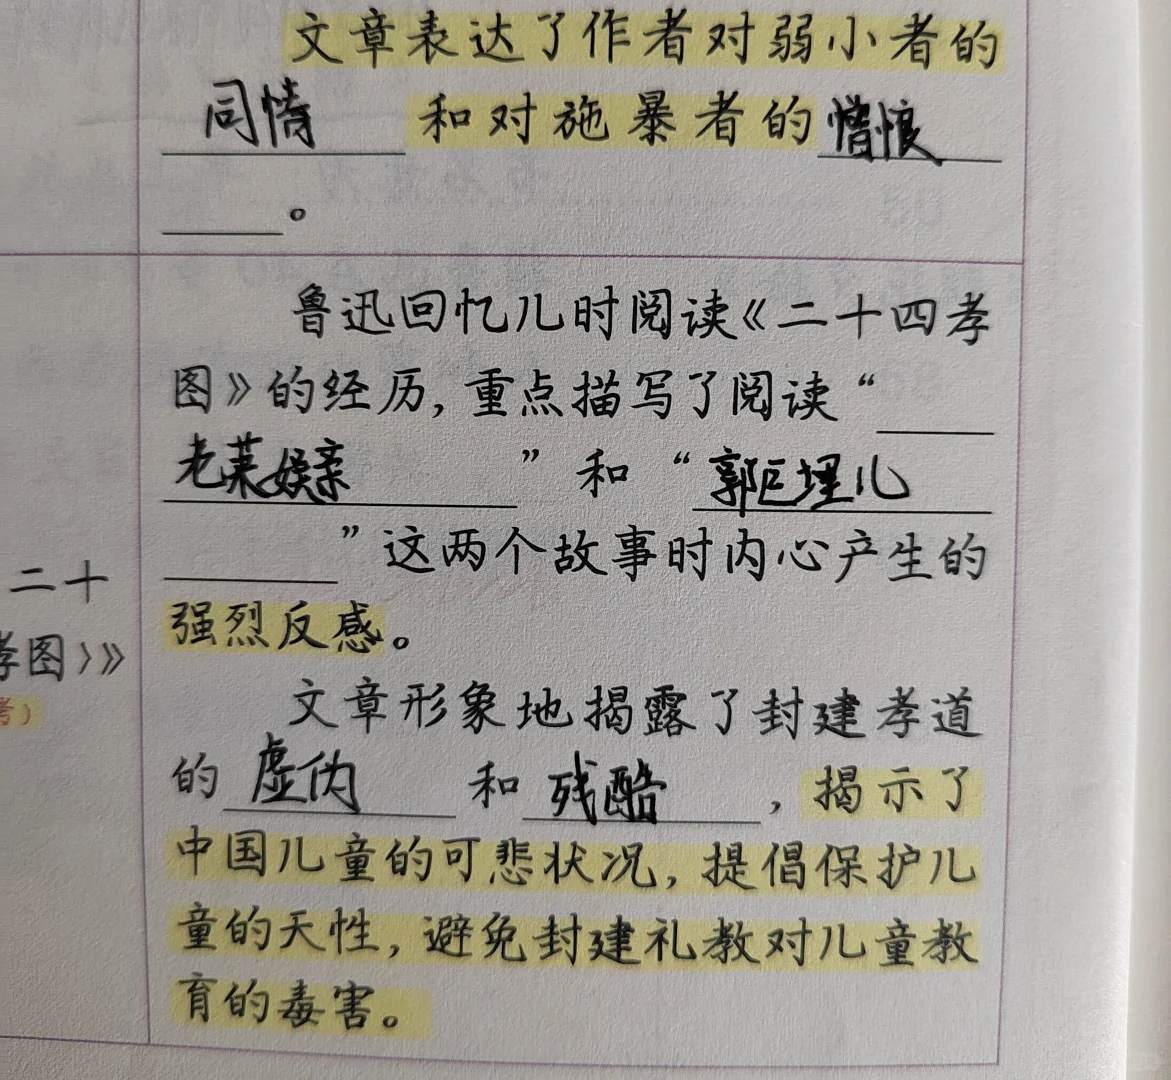 文章表达了作者对弱小者的
同情 和对施暴者的憎恨
。
鲁迅回忆儿时阅读《二十四孝
图》的经历,重点描写了阅读“
老莱娱亲 ” 和 “郭巨埋儿
”这两个故事时内心产生的
强烈反感。
文章形象地揭露了封建孝道
的 虚伪 和 残酷 ,揭示了
中国儿童的可悲状况,提倡保护儿
童的天性,避免封建礼教对儿童教
育的毒害。
二十
孝图〉》
考)